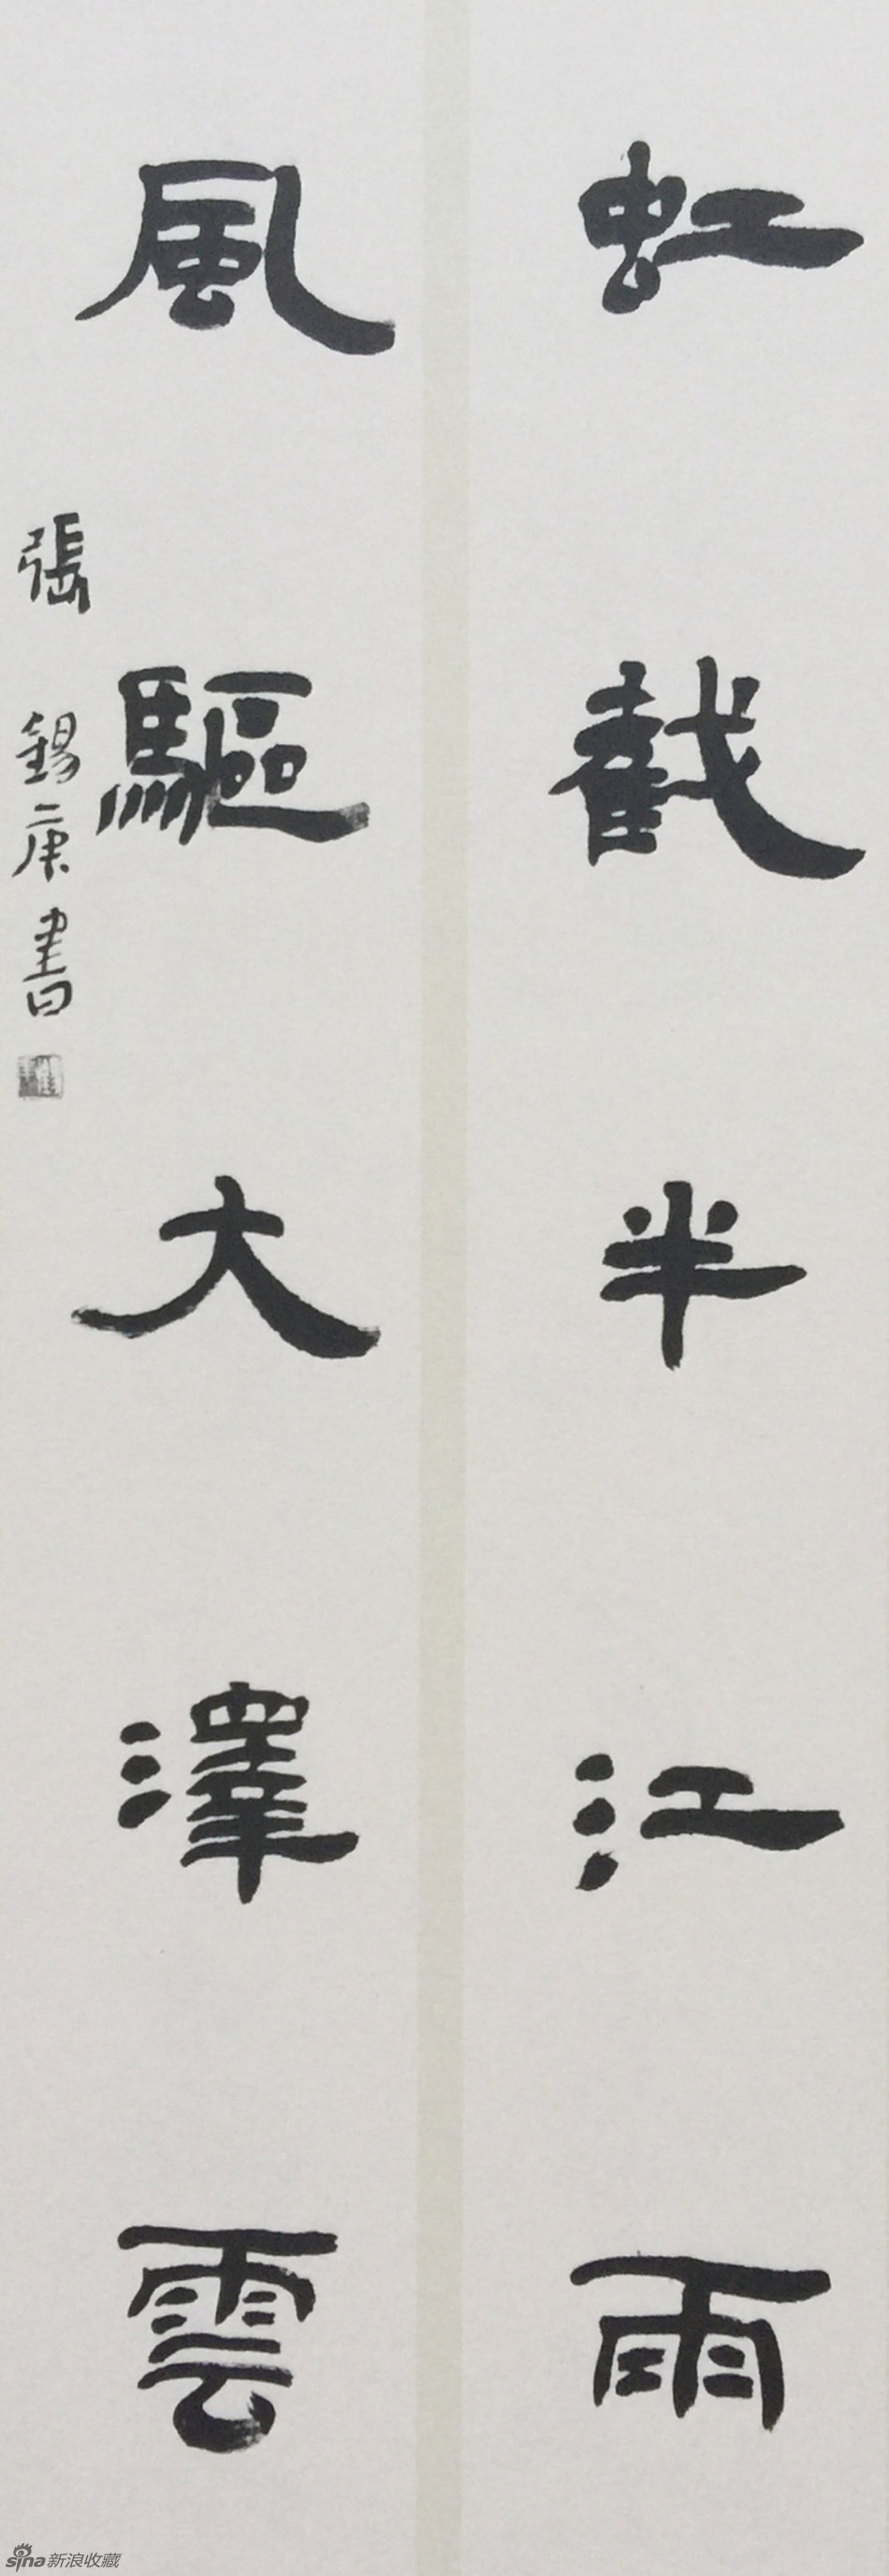 虹截半江雨
風驅大澤雲
張錫庚書
sina新浪收藏